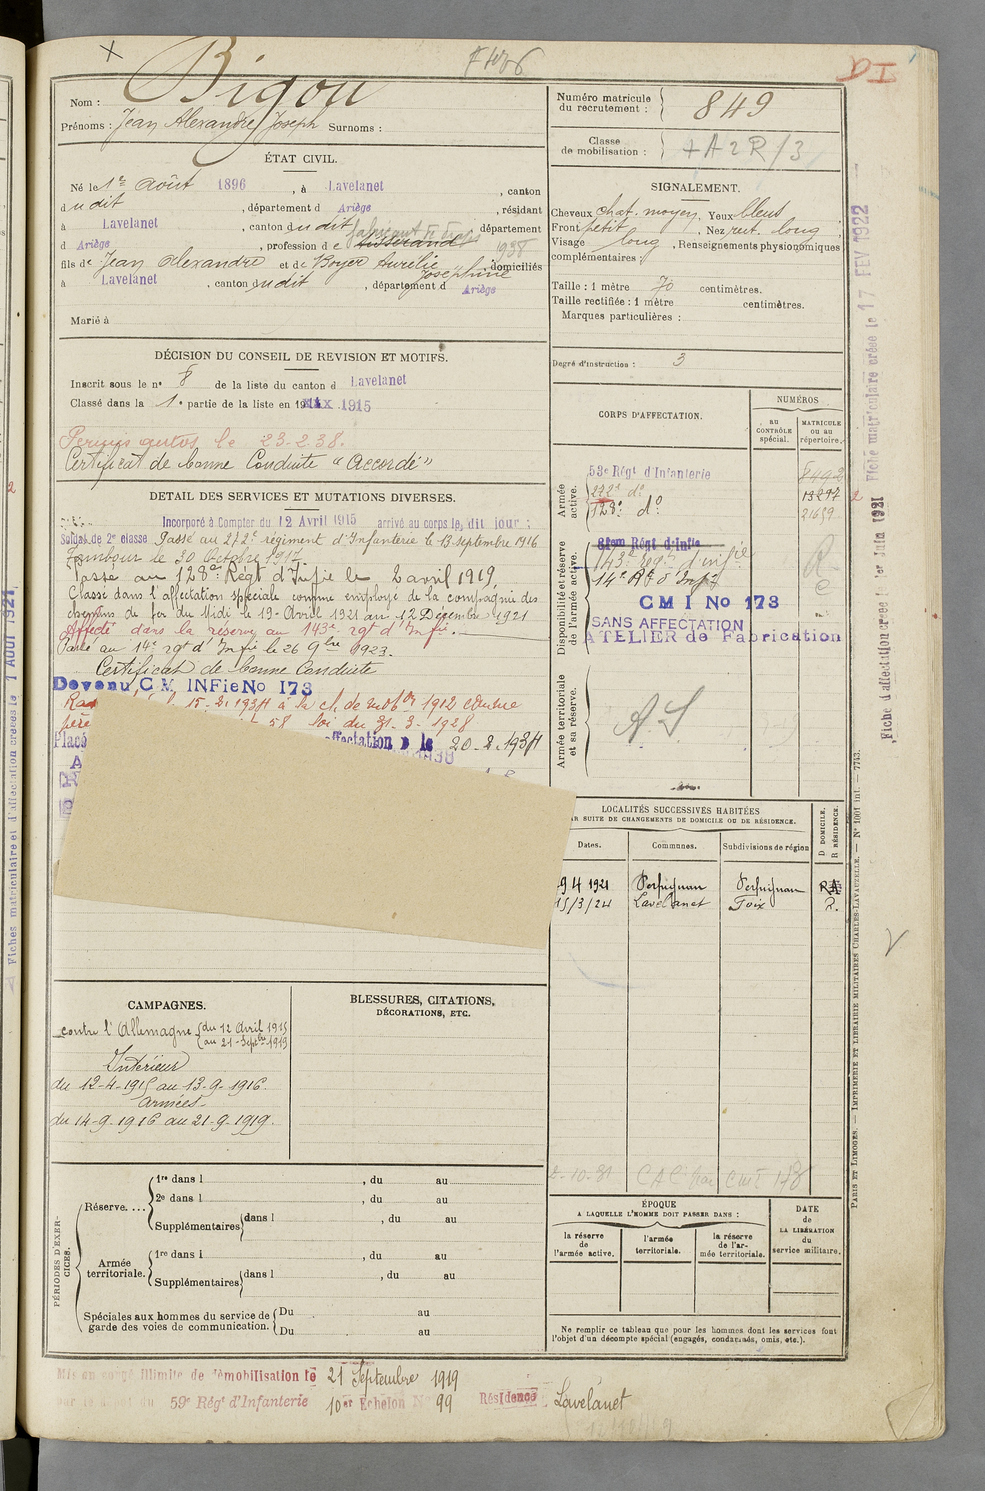 Bigou
Nom :
Prénoms : Jean Alexandre Joseph Surnoms :
ÉTAT CIVIL.
Né le 1er Août 1896, à Lavelanet, canton
dudit, département d Ariège, résidant
à Lavelanet, canton dudit département
d Ariège, profession de tisserand
1938
fils de Jean Alexandre et de Boyer Aurélie Joséphine domiciliés
à Lavelanet, canton dudit, département d Ariège
Marié à
DÉCISION DU CONSEIL DE REVISION ET MOTIFS.
Inscrit sous le n° 8 de la liste du canton d Lavelanet
Classé dans la 1e partie de la liste en 1915
Permis autos le 23-2-38.
Certificat de bonne Conduite "Accordé"
DETAIL DES SERVICES ET MUTATIONS DIVERSES.
Incorporé à Compter du 12 Avril 1915 arrivé au corps le, dit jour ;
Soldat de 2e classe Passé au 272e régiment d'Infanterie le 13 septembre 1916
Tambour le 30 Octobre 1917
Passé au 128e Régt d'Infie le 2 avril 1919
Classé dans l'affectation spéciale comme employé de la compagnie des
chemins de fer du Midi le 19 Avril 1921 au 12 Décembre 1921
Affecté dans la réserve au 143e rgt d'Infie.
Passé au 14e rgt d'Infie le 26 9bre 1923.
Certificat de bonne Conduite
Devenu C M INFie No 173
15-2-1934 à la cl. de mobon 1912 comme
père 58 loi du 31-3-1928
Placé affectation le 20-2-1934
CAMPAGNES.
contre l'Allemagne du 12 Avril 1915
au 21 Septbre 1919
Intérieur
du 12-4-1915 au 13-9-1916
Armées
du 14-9-1916 au 21-9-1919.
BLESSURES, CITATIONS,
DÉCORATIONS, ETC.
PÉRIODES D'EXERCICES.
Réserve....
1re dans l , du au
2e dans l , du au
Supplémentaires dans l , du au
Armée territoriale.
1re dans l , du au
Supplémentaires dans l , du au
Spéciales aux hommes du service de
garde des voies de communication.
Du au
Du au
Numéro matricule
du recrutement : 849
Classe
de mobilisation : + A 2 R / 3
SIGNALEMENT.
Cheveux chat. moyen, Yeux bleus
Front petit, Nez rect. long ;
Visage long, Renseignements physionomiques
complémentaires :
Taille : 1 mètre 70 centimètres.
Taille rectifiée : 1 mètre centimètres.
Marques particulières :
Degré d'instruction : 3
CORPS D'AFFECTATION.
NUMÉROS
au
CONTRÔLE
spécial.
MATRICULE
ou au
répertoire.
Armée active.
53e Régt d'Infanterie
272e d°
13297
128e d°
21659
Disponibilité et réserve de l'armée active.
81em Régt d'Infie
143e Régt d'Infie
14e Rt d'Infie
C M I No 173
SANS AFFECTATION
ATELIER de Fabrication
Armée territoriale et sa réserve.
A.S
LOCALITÉS SUCCESSIVES HABITÉES
PAR SUITE DE CHANGEMENTS DE DOMICILE OU DE RÉSIDENCE.
Dates.
Communes.
Subdivisions de région
D DOMICILE.
R RÉSIDENCE.
9 4 1921 Perpignan Perpignan
15/3/24 Lavelanet Foix R.
ÉPOQUE
A LAQUELLE L'HOMME DOIT PASSER DANS :
la réserve
de
l'armée active.
l'armée
territoriale.
la réserve
de l'armée territoriale.
DATE
de
LA LIBÉRATION
du
service militaire.
Ne remplir ce tableau que pour les hommes dont les services font
l'objet d'un décompte spécial (engagés, condamnés, omis, etc.).
Mis en congé illimité de démobilisation le 21 Septembre 1919
par le dépôt du 59e Régt d'Infanterie 10er Echelon N° 99 Résidence Lavelanet
PARIS ET LIMOGES. — IMPRIMERIE ET LIBRAIRIE MILITAIRES CHARLES-LAVAUZELLE. — N° 1001 int. — 7743.
Fiche d'affectation créée le 1er Juin 1921 Fiche matriculaire créée le 17 FEV 1922
Fiches matriculaire et d'affectation créées le 1 AOUT 1921